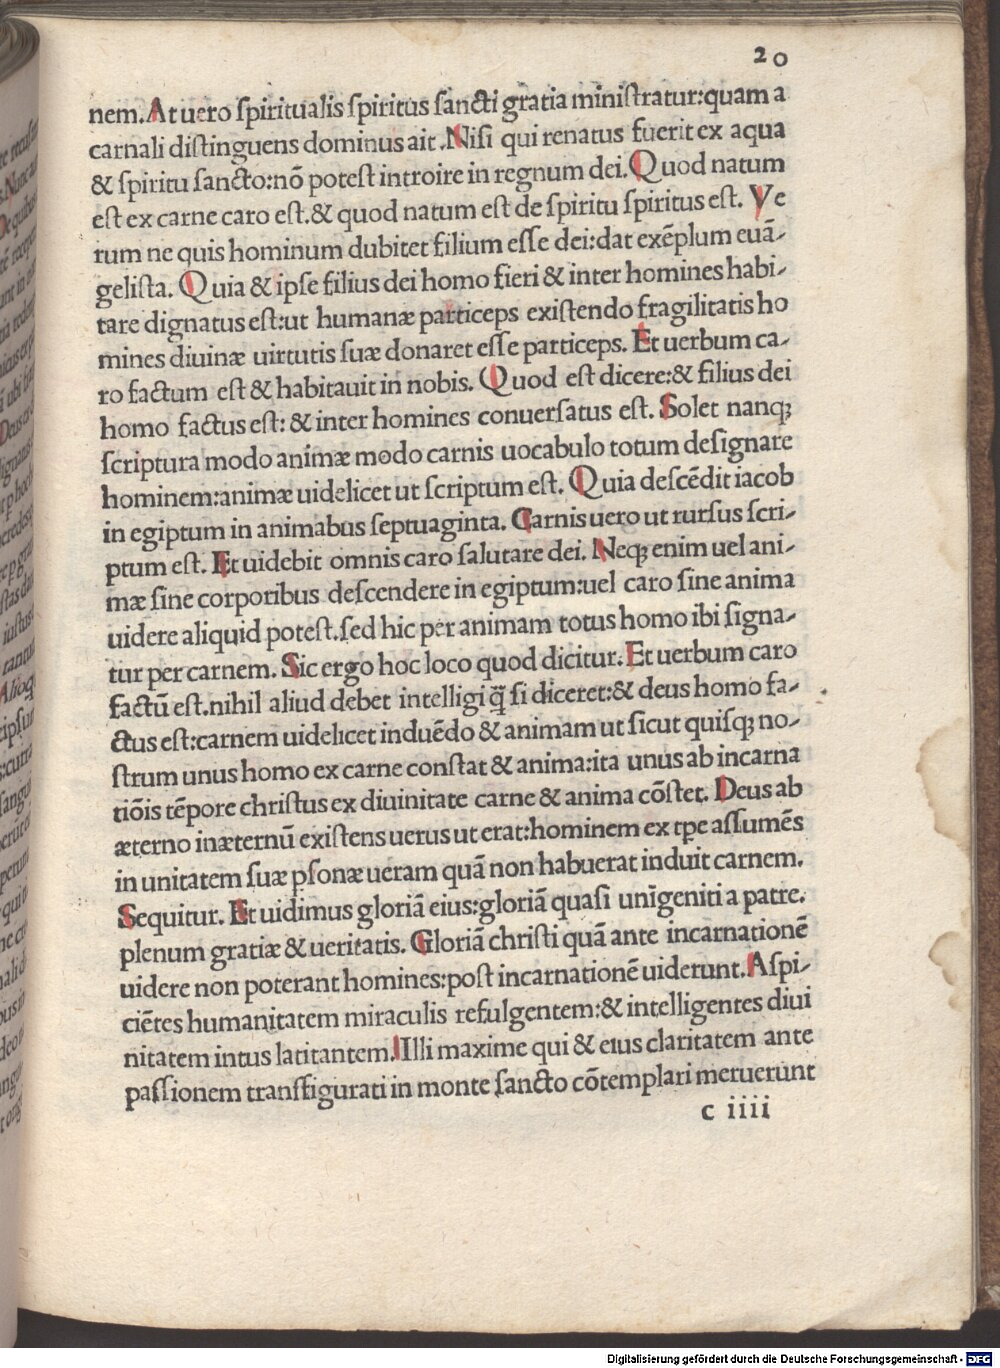 20
nem. At uero ſpiritualis ſpiritus ſancti gratia miniſtratur: quam a
carnali diſtinguens dominus ait. Niſi qui renatus fuerit ex aqua
& ſpiritu ſancto: nō poteſt introire in regnum dei. Quod natum
eſt ex carne caro eſt. & quod natum eſt de ſpiritu ſpiritus eſt. Ve
rum ne quis hominum dubitet filium eſſe dei: dat exēplum euā-
geliſta. Quia & ipſe filius dei homo fieri & inter homines habi-
tare dignatus eſt: ut humanæ particeps exiſtendo fragilitatis ho
mines diuinæ uirtutis ſuæ donaret eſſe particeps. Et uerbum ca-
ro factum eſt & habitauit in nobis. Quod eſt dicere: & filius dei
homo factus eſt: & inter homines conuerſatus eſt. Solet nanqꝫ
ſcriptura modo animæ modo carnis uocabulo totum deſignare
hominem: animæ uidelicet ut ſcriptum eſt. Quia deſcēdit iacob
in egiptum in animabus ſeptuaginta. Carnis uero ut rurſus ſcri-
ptum eſt. Et uidebit omnis caro ſalutare dei. Neqꝫ enim uel ani-
mæ ſine corporibus deſcendere in egiptum: uel caro ſine anima
uidere aliquid poteſt. ſed hic per animam totus homo ibi ſigna-
tur per carnem. Sic ergo hoc loco quod dicitur. Et uerbum caro
factū eſt. nihil aliud debet intelligi q̄ ſi diceret: & deus homo fa-
ctus eſt: carnem uidelicet induēdo & animam ut ſicut quiſqꝫ no-
ſtrum unus homo ex carne conſtat & anima: ita unus ab incarna
tiōis tēpore chriſtus ex diuinitate carne & anima cōſtet. Deus ab
æterno inæternū exiſtens uerus ut erat: hominem ex tp̄e aſſumēs
in unitatem ſuæ pſonæ ueram quā non habuerat induit carnem.
Sequitur. Et uidimus gloriā eius: gloriā quaſi unigeniti a patre.
plenum gratiæ & ueritatis. Gloriā chriſti quā ante incarnationē
uidere non poterant homines: poſt incarnationē uiderunt. Aſpi-
ciētes humanitatem miraculis refulgentem: & intelligentes diui
nitatem intus latitantem. Illi maxime qui & eius claritatem ante
paſſionem transfigurati in monte ſancto cōtemplari meruerunt
c iiii
Digitalisierung gefördert durch die Deutsche Forschungsgemeinschaft - DFG